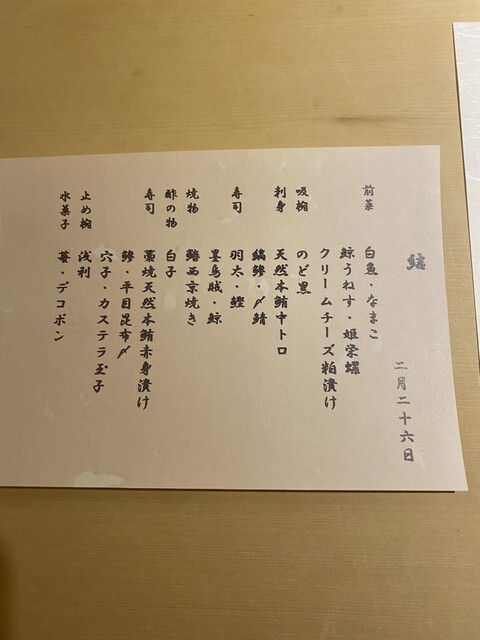 二月二十六日
前菜 白魚・なまこ
鯨うねす・姫栄螺
クリームチーズ粕漬け
吸椀 のど黒
刺身 天然本鮪中トロ
縞鰺・〆鯖
寿司 羽太・鰹
墨烏賊・鯨
焼物 鰆西京焼き
酢の物 白子
寿司 藁焼天然本鮪赤身漬け
鰺・平目昆布〆
穴子・カステラ玉子
止め椀 浅利
水菓子 苺・デコポン